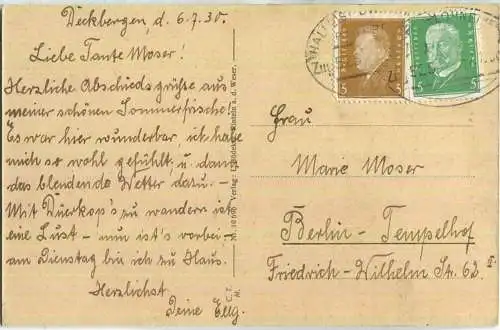 Deckbergen, d. 6.7.30.
Liebe Tante Moser!
Herzliche Abschiedsgrüße aus
meiner schönen Sommerfrische!
Es war hier wunderbar, ich habe
mich so wohl gefühlt, u. dann
das blendende Wetter dazu. –
Mit Dierkop's zu wandern ist
eine Lust – nun ist's vorbei –
am Dienstag bin ich zu Haus.
Herzlichst
Deine Ellg.
Verlag:
a. d. Weser.
5 5
5 5
Frau
Marie Moser
Berlin – Tempelhof
Friedrich-Wilhelm Str. 62 II.